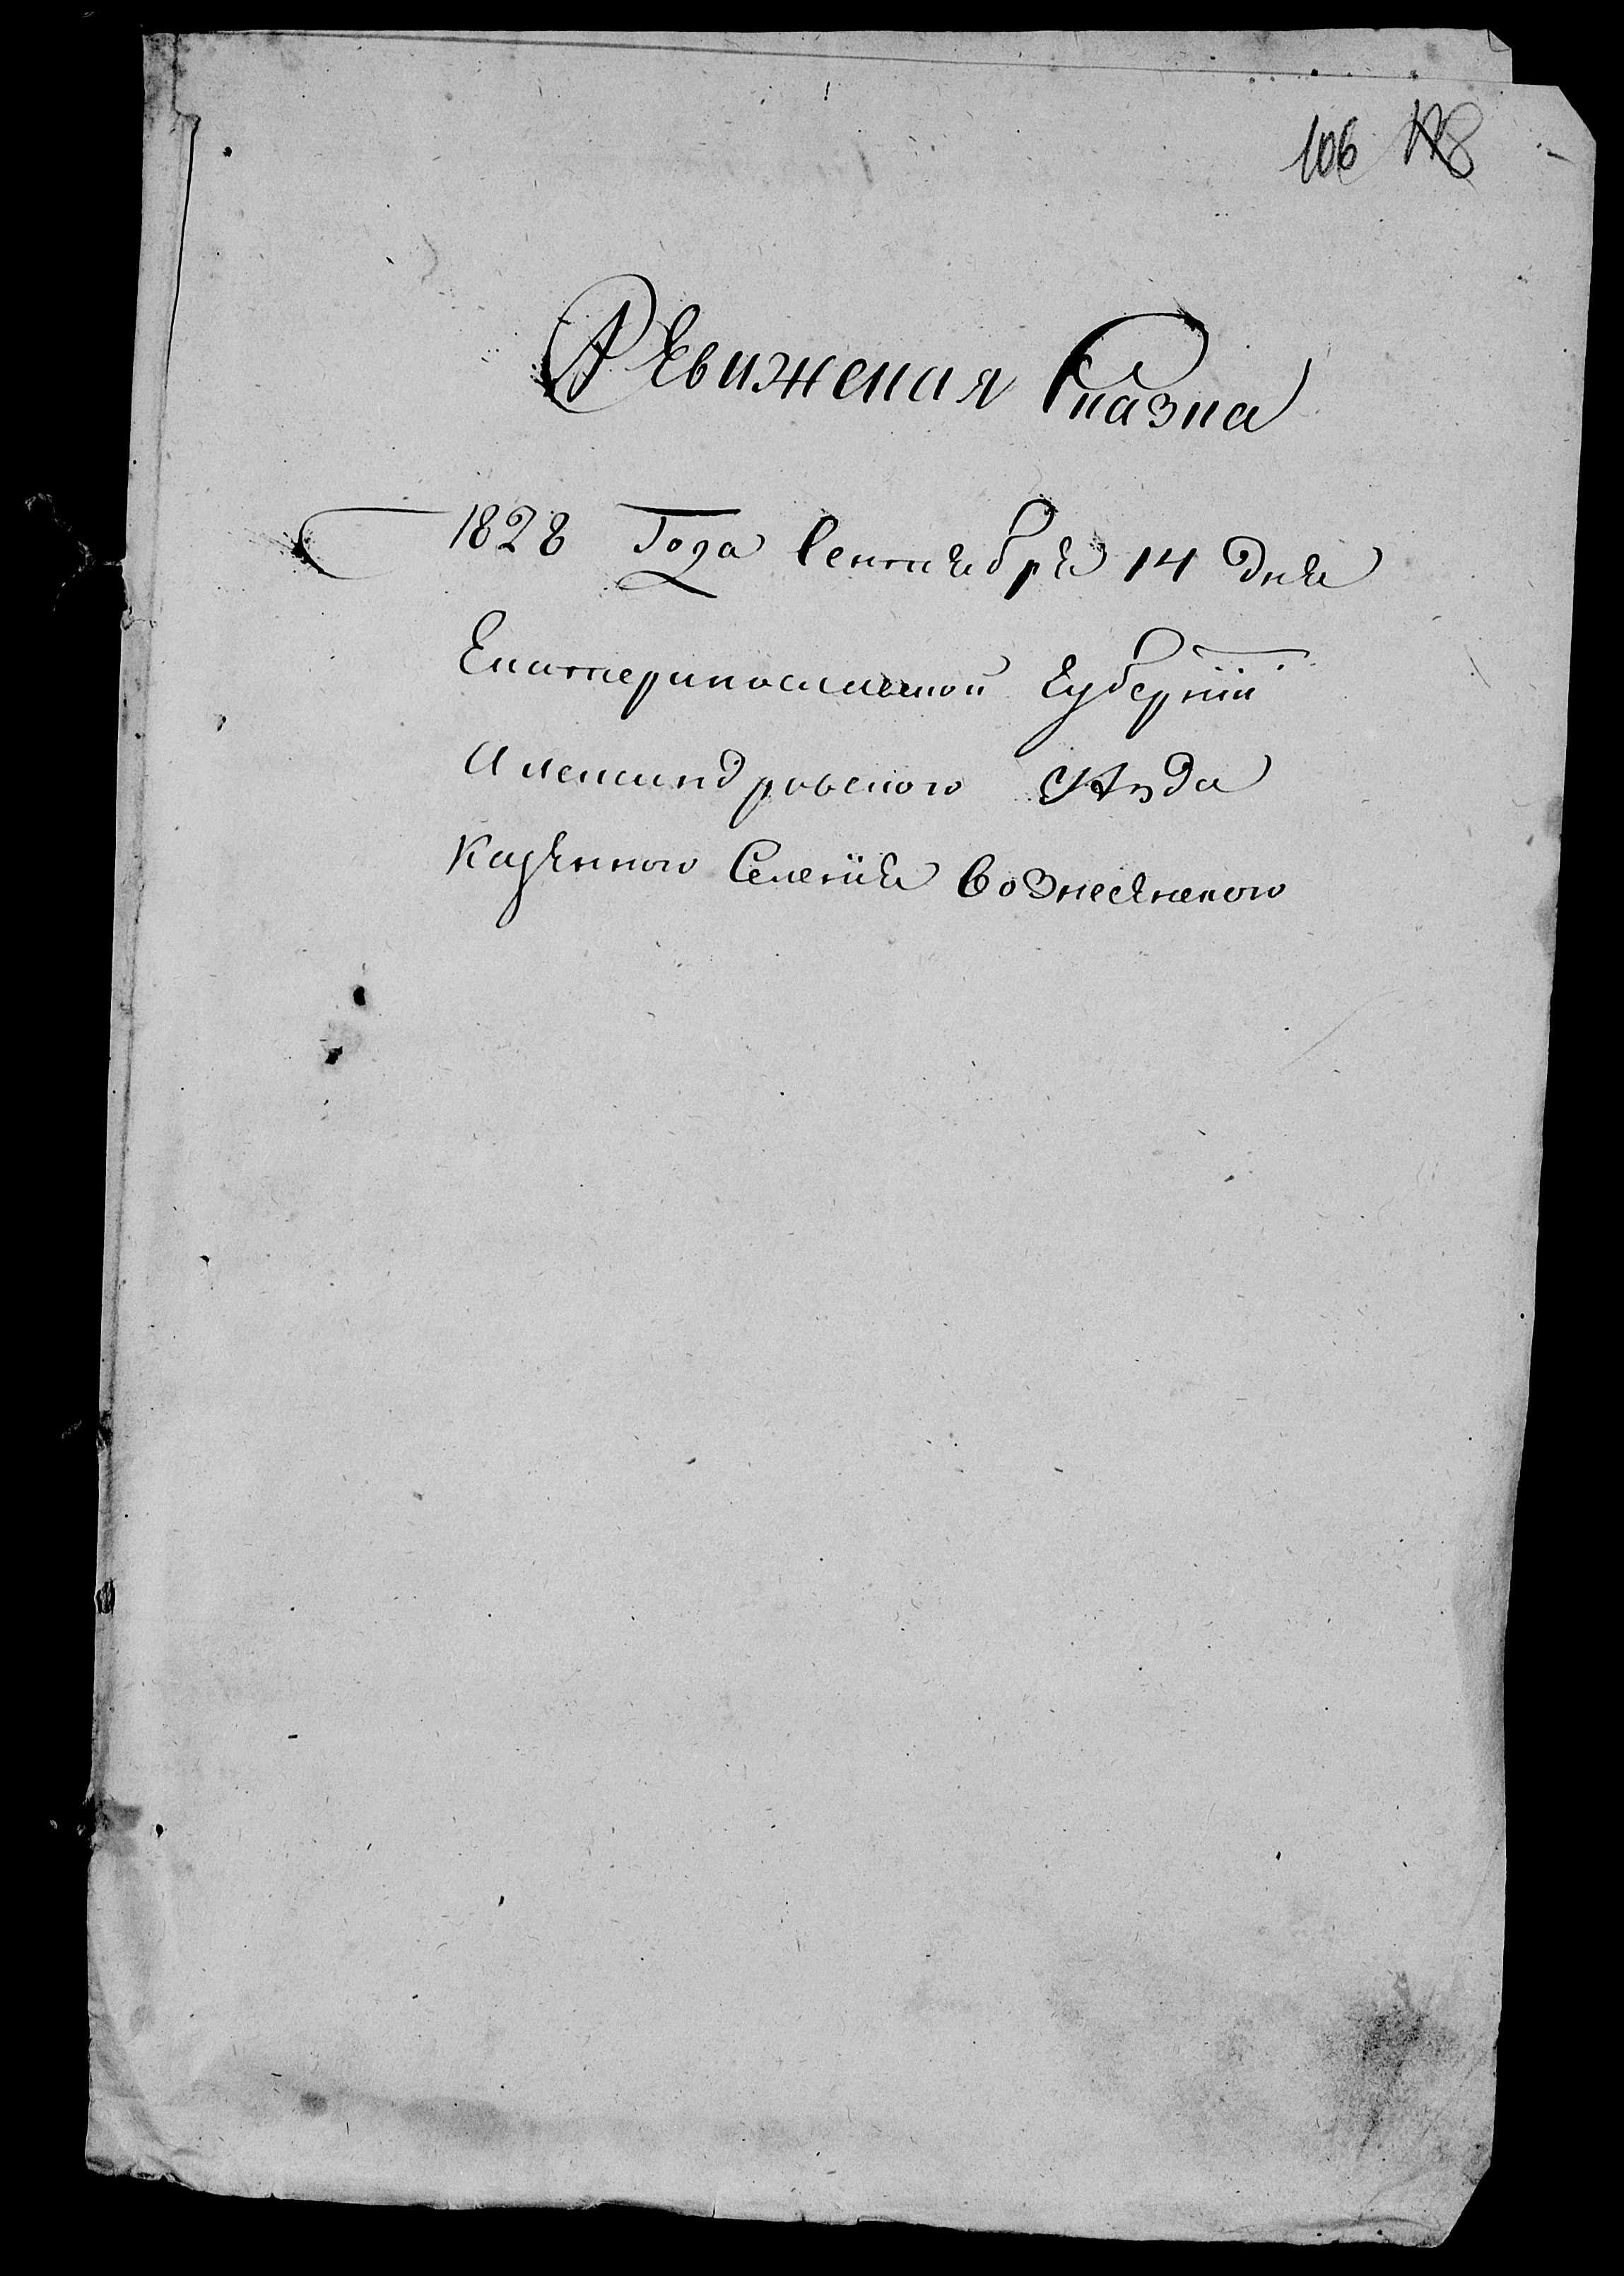 106
Ревижская Сказка
1828 Года Сентября 14 дня
Екатеринославской Губернiи
Александровского уѣзда
Казенного Селенiя Вознесенского